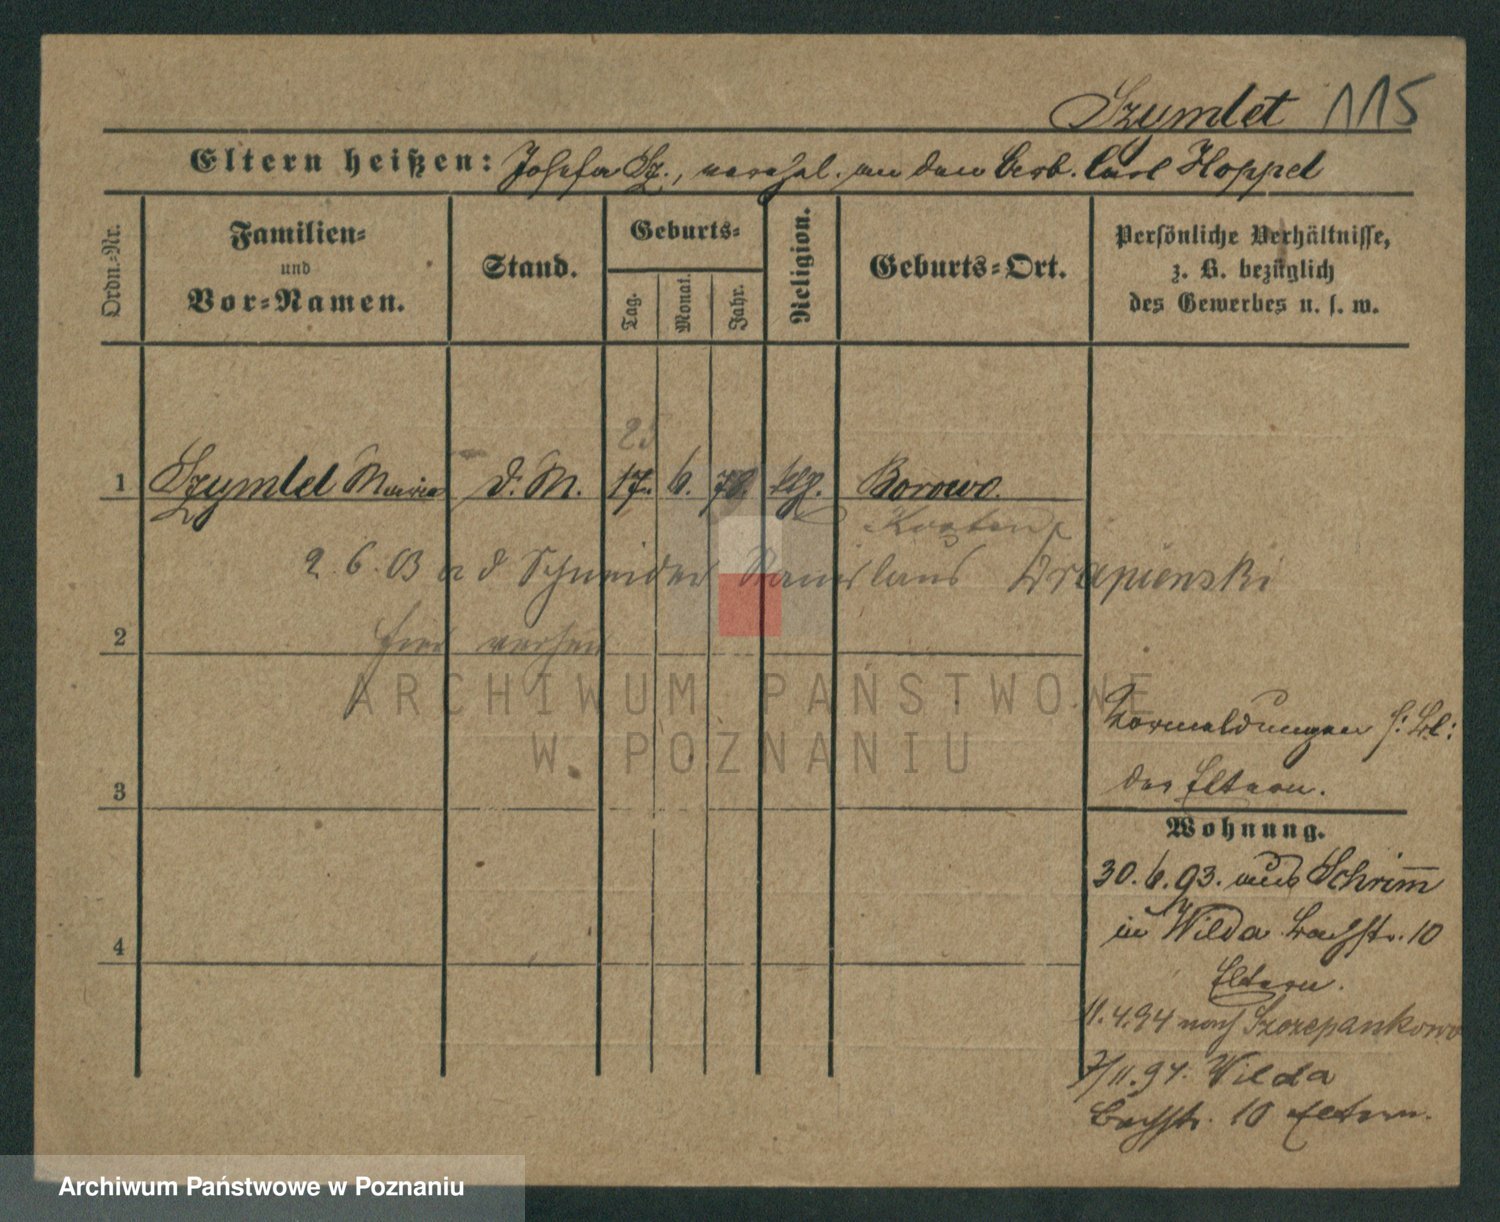 Szymlet 115
Eltern heißen: Josefa Sz., verehel. an den Arb. Carl Hoppel
Ordn.-Nr.
Familien-
und
Vor-Namen.
Stand.
Geburts-
Tag.
Monat.
Jahr.
Religion.
Geburts-Ort.
Persönliche Verhältnisse,
z. B. bezüglich
des Gewerbes u. s. w.
25
1 Szymlet Maria d. M. 17. 6. 78. klg. Borowo.
Kosten
2.6.03 a d Schneider Stanislaus Drapienski
hier verh
2
ARCHIWUM PAŃSTWOWE
W POZNANIU
Vormeldungen s: Bl:
der Eltern.
3
Wohnung.
30.6.93. aus Schrimm
in Wilda Bachstr. 10
Eltern.
4
11.4.94 nach Szczepankowo
7/11.94. Wilda
Bachstr. 10 Eltern.
Archiwum Państwowe w Poznaniu